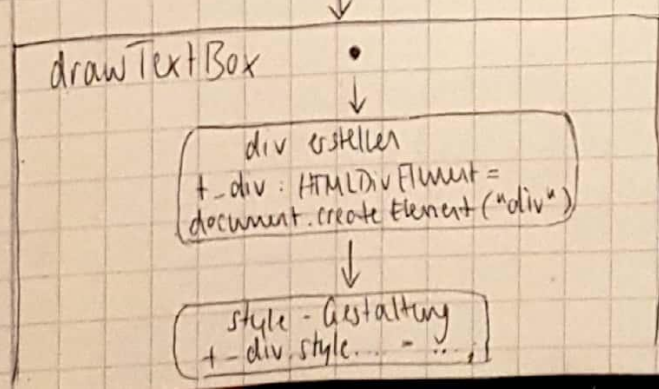 drawTextBox
div erstellen
+_div : HTMLDivElement =
document.createElement("div")
style - Gestaltung
+_div.style.... = ...;